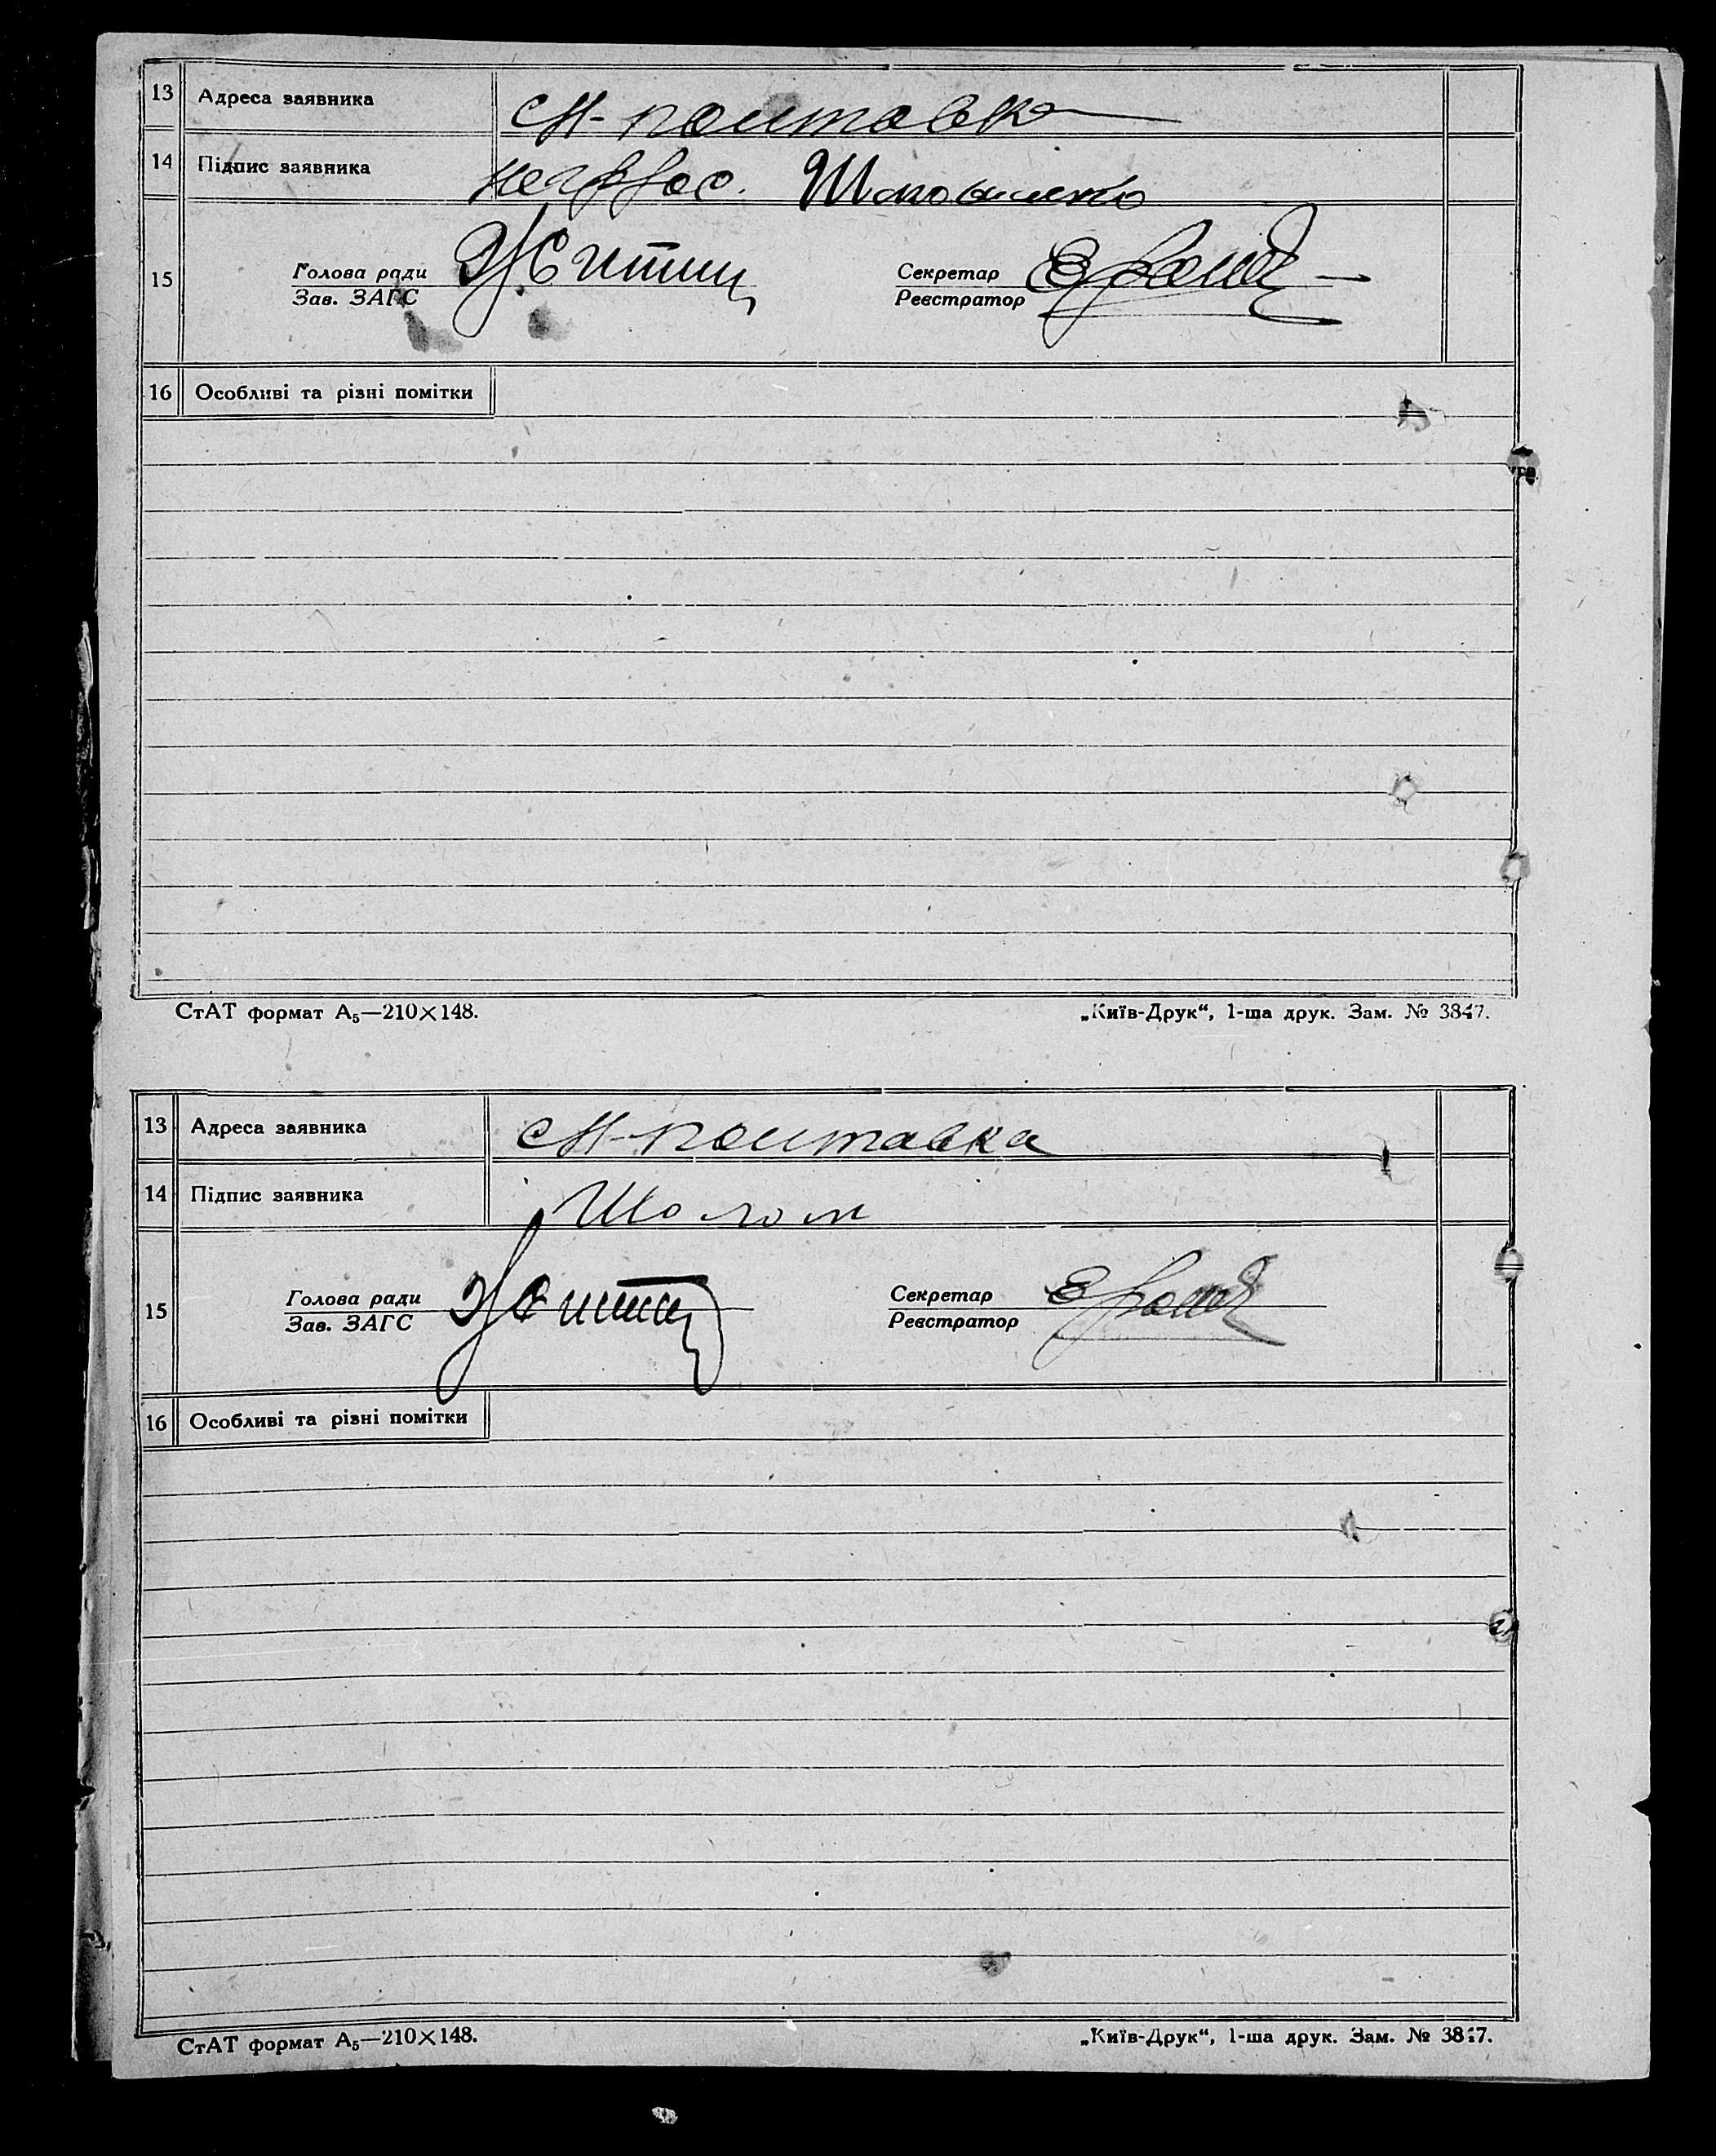 13 Адреса заявника М-полтавка
14 Підпис заявника
15 Голова ради Секретар
Зав. ЗАГС Реєстратор
16 Особливі та різні помітки
СтАТ формат А₅—210×148. „Київ-Друк“, 1-ша друк. Зам. № 3847.
13 Адреса заявника М-полтавка
14 Підпис заявника Шолом
15 Голова ради Секретар
Зав. ЗАГС Реєстратор
16 Особливі та різні помітки
СтАТ формат А₅—210×148. „Київ-Друк“, 1-ша друк. Зам. № 3847.